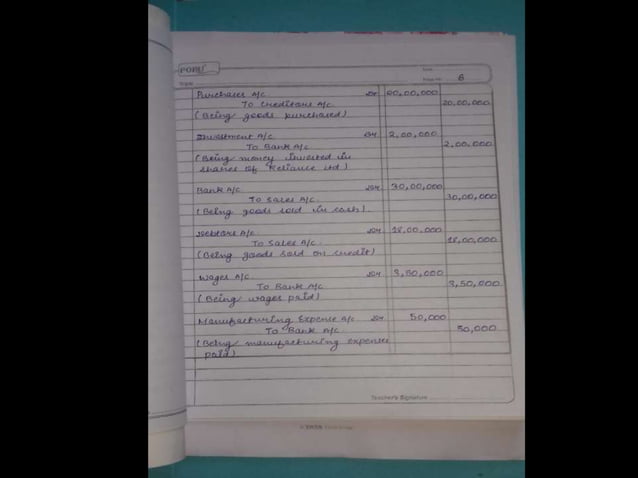 Page No. 6
Purchases A/c Dr. 20,00,000
To Creditors A/c 20,00,000
(Being goods purchased)
Investment A/c Dr. 2,00,000
To Bank A/c 2,00,000
(Being money invested in
shares of Reliance Ltd)
Bank A/c Dr. 30,00,000
To Sales A/c. 30,00,000
(Being goods sold in cash).
Debtors A/c Dr. 18,00,000
To Sales A/c. 18,00,000
(Being goods sold on credit)
Wages A/c Dr. 3,50,000
To Bank A/c 3,50,000
(Being wages paid)
Manufacturing Expense A/c Dr. 50,000
To Bank A/c. 50,000
(Being manufacturing expenses
paid)
Teacher's Signature